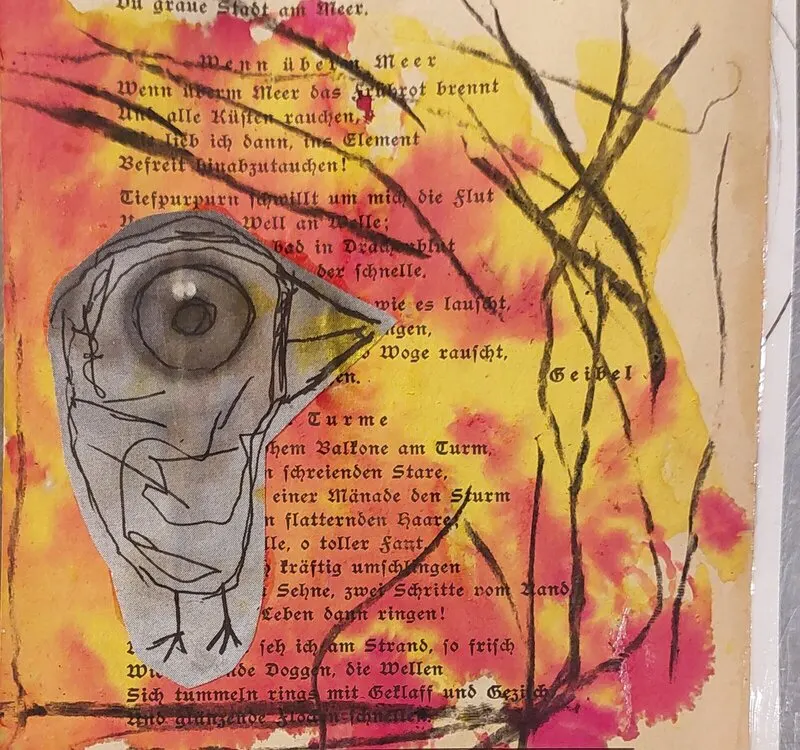 Du graue Stadt am Meer.
Wenn überm Meer
Wenn überm Meer das Frührot brennt
Und alle Küsten rauchen,
lieb ich dann, ins Element
Befreit hinabzutauchen!
Tiefpurpurn schwillt um mich die Flut
Well an Welle;
bad in Drachenblut
der schnelle.
wie es lauscht,
ngen,
Woge rauscht,
en.
Geibel
Turme
hem Balkone am Turm,
schreienden Stare,
einer Mänade den Sturm
flatternden Haare;
lle, o toller Fant,
kräftig umschlingen
Sehne, zwei Schritte vom Rand
Leben dann ringen!
seh ich am Strand, so frisch
Wie de Doggen, die Wellen
Sich tummeln rings mit Gekläff und Gezisch
Und glänzende Flocken schnellen.